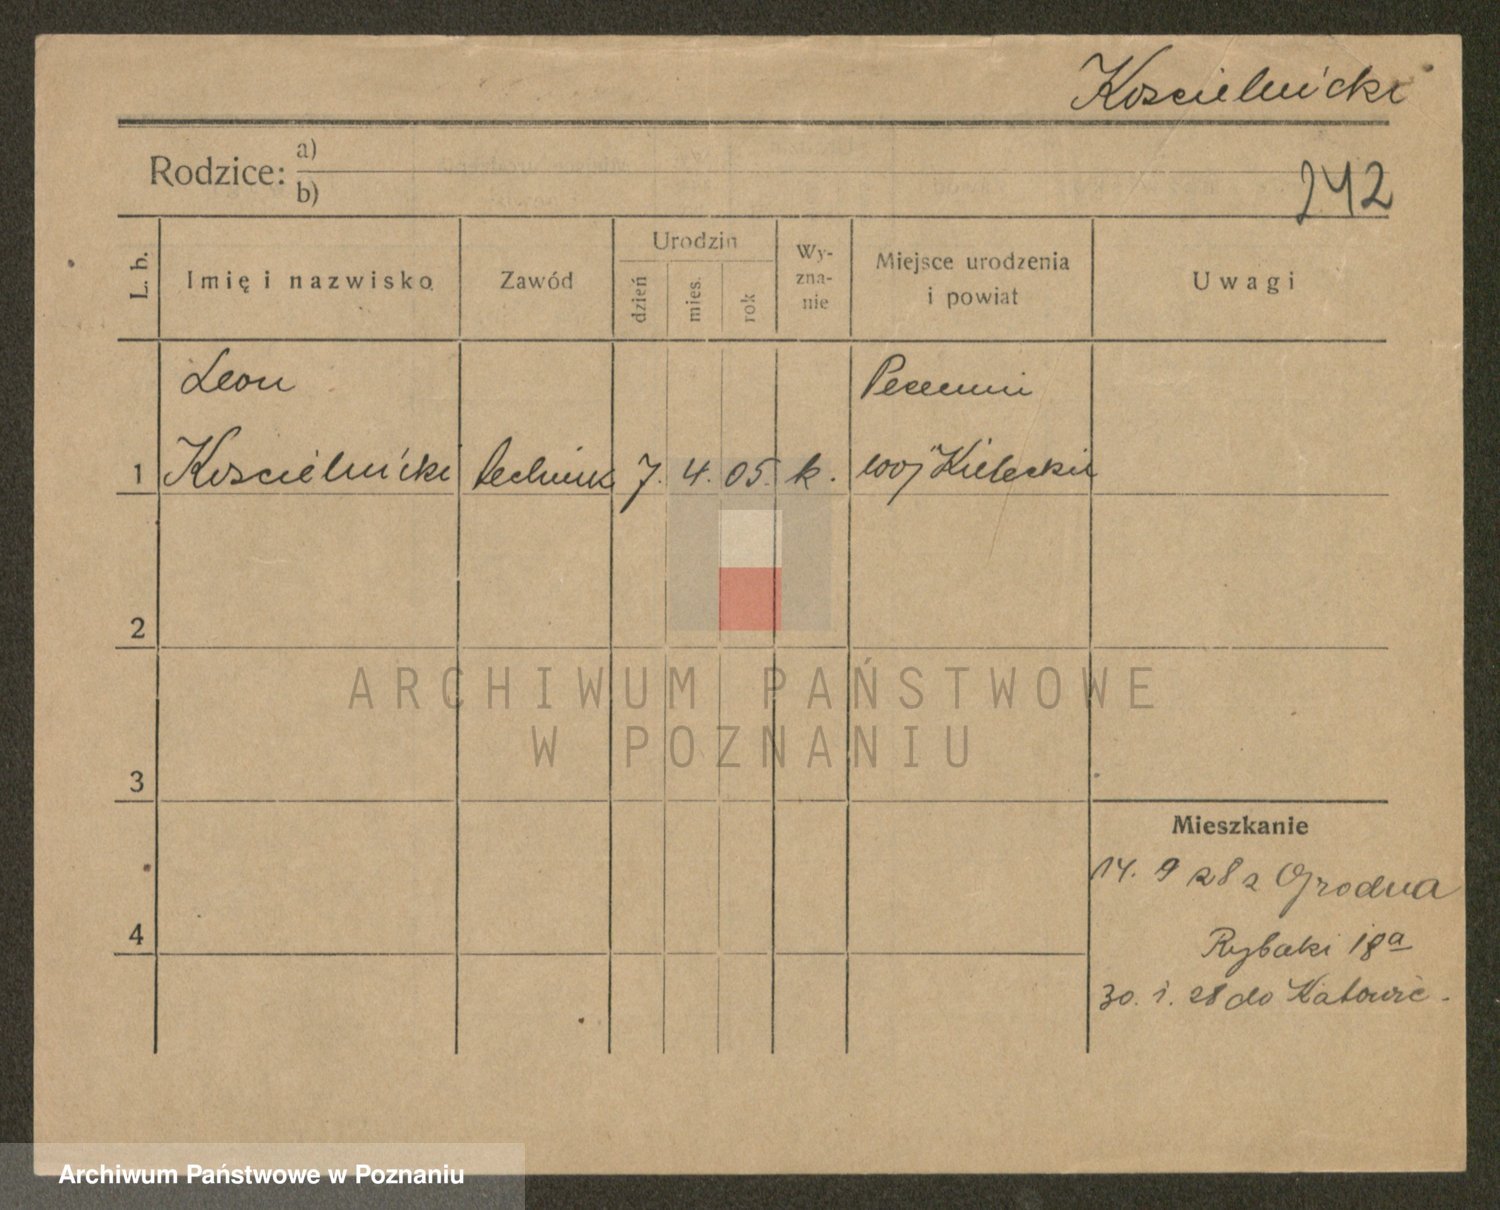 Koscielnicki
Rodzice: a)
b)
242
L. b.
Imię i nazwisko
Zawód
Urodzin
dzień
mies.
rok
Wy-
zna-
nie
Miejsce urodzenia
i powiat
Uwagi
Leon
1 Koscielnicki technik 7. 4. 05. k. woj Kieleckie
2
3
4
Mieszkanie
14. 9 28 z Grodna
Rybaki 18a
30. 1. 28 do Katowic.
ARCHIWUM PAŃSTWOWE
W POZNANIU
Archiwum Państwowe w Poznaniu